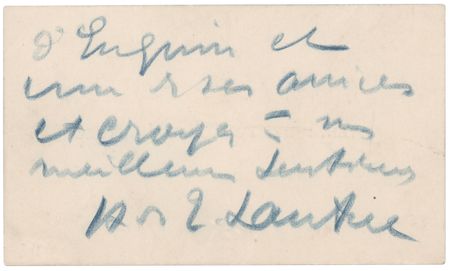 et
une de ses amies
et croyez à mes
meilleurs sentiments
H de T Lautrec